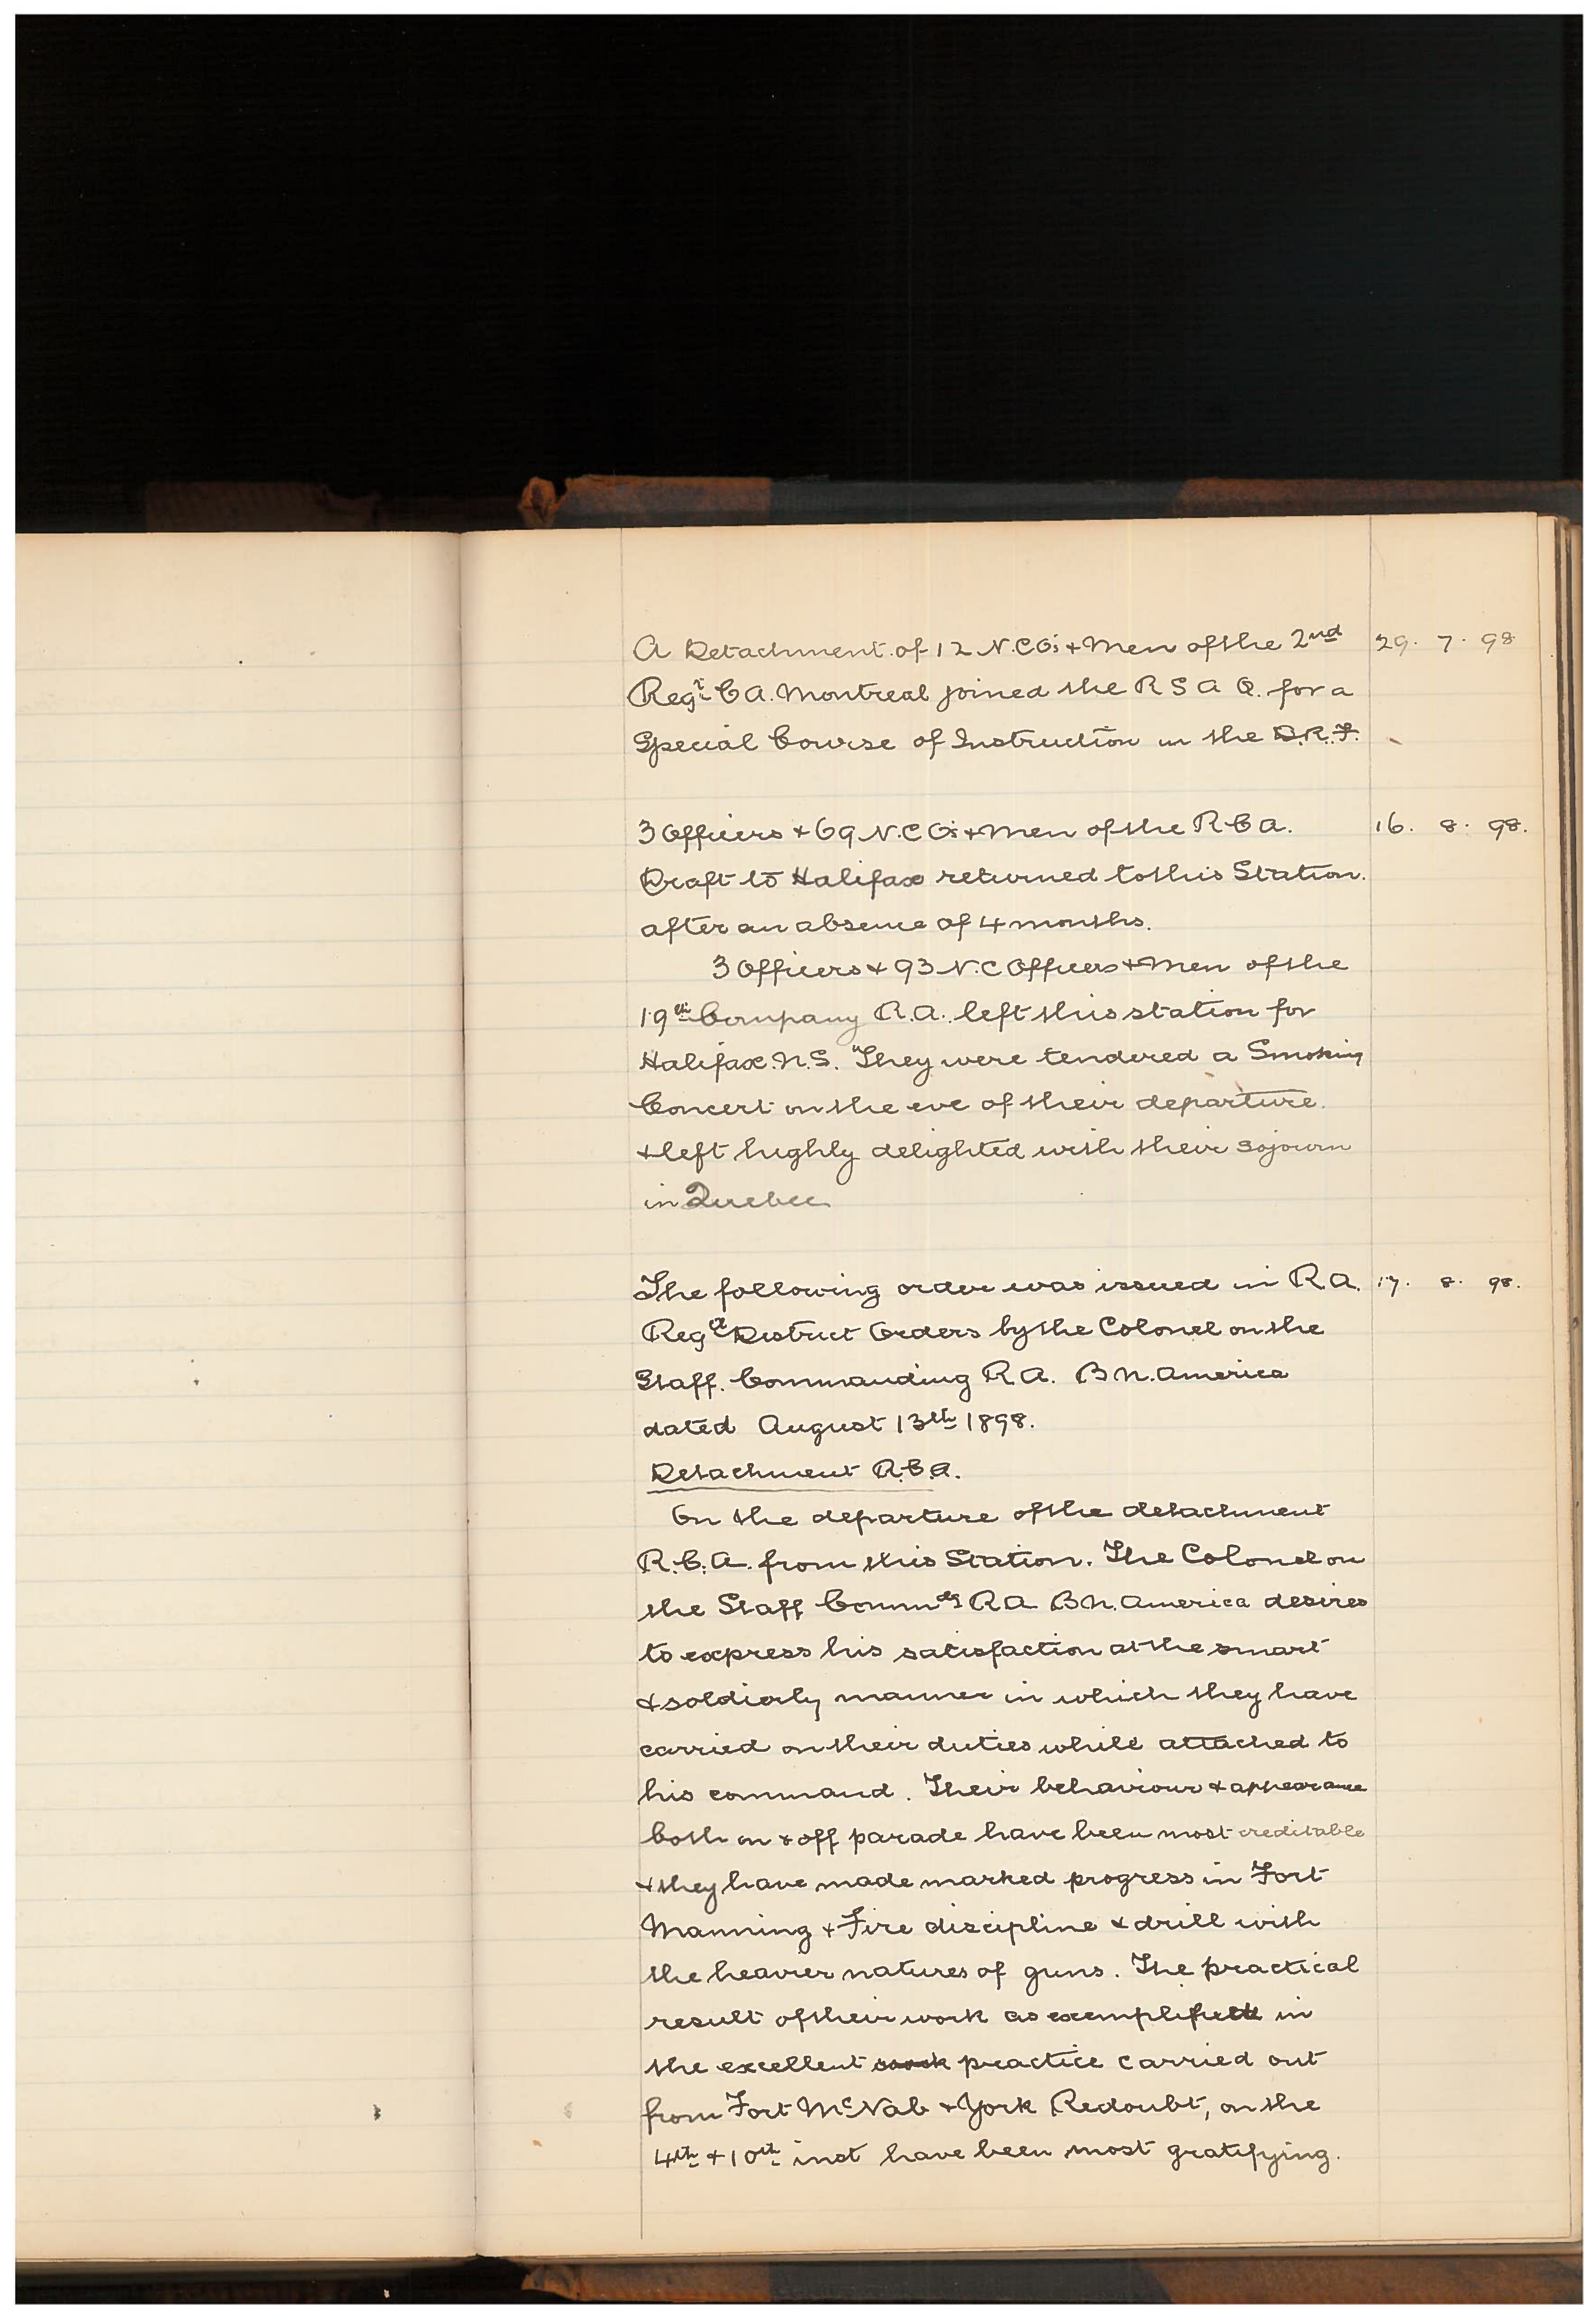 A Detachment of 12 N.C.O's + Men of the 2nd 29. 7. 98
Regt. C A. Montreal joined the R S A Q. for a
Special Course of Instruction in the D.R.F.
3 Officers + 69 N.C.O's + Men of the R C A. 16. 8. 98.
Draft to Halifax returned to this Station.
after an absence of 4 months.
3 Officers + 93 N.C Officers + Men of the
19th Company R.A. left this station for
Halifax. N.S. They were tendered a Smoking
Concert on the eve of their departure.
+ left highly delighted with their sojourn
in Quebec
The following order was issued in R A. 17. 8. 98.
Regtl District Orders by the Colonel on the
Staff. Commanding R A. B N. America
dated August 13th 1898.
Detachment R.C.A.
On the departure of the detachment
R.C.A. from this Station. The Colonel on
the Staff Commdg R A B N. America desires
to express his satisfaction at the smart
& soldierly manner in which they have
carried on their duties while attached to
his command. Their behaviour + appearance
both on + off parade have been most creditable
+ they have made marked progress in Fort
Manning + Fire discipline & drill with
the heavier natures of guns. The practical
result of their work as exemplified in
the excellent work practice carried out
from Fort McNab + York Redoubt, on the
4th + 10th inst have been most gratifying.